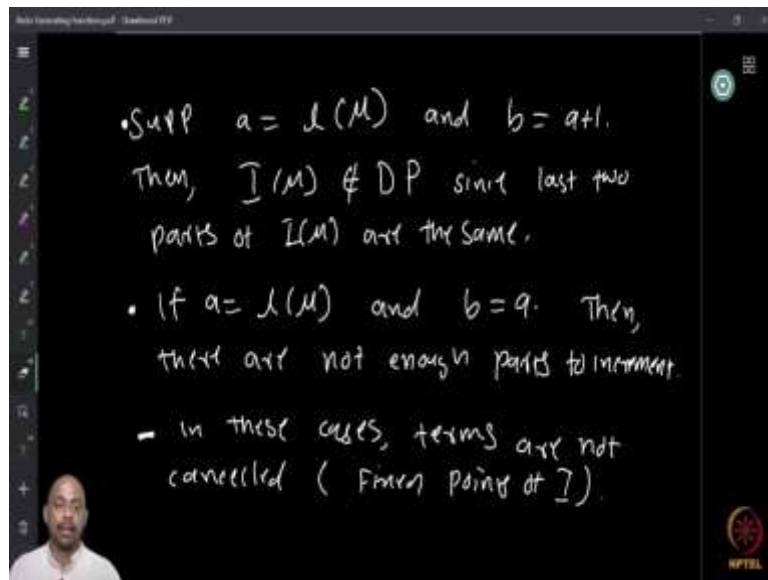 • Supp a = l(μ) and b = a+1.
Then, I(μ) ∉ DP since last two
parts of I(μ) are the same.
• If a = l(μ) and b = a. Then,
there are not enough parts to increment.
- in these cases, terms are not
cancelled ( Fixed points of I ).
NPTEL